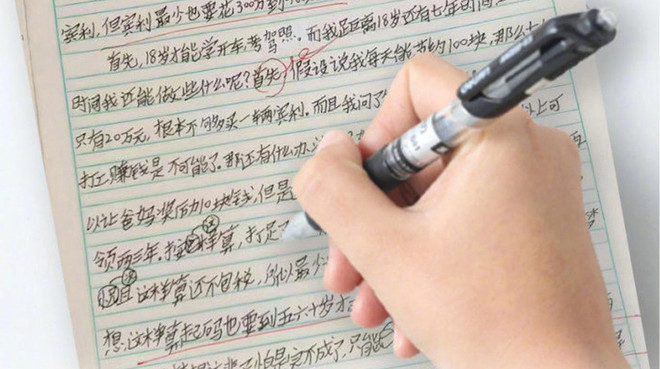 宾利,但宾利最少也要花300万到
首先,18岁才能学开车考驾照。而我距离18岁还有七年的时间
时间我还能做些什么呢?首先,假设说我每天能节约100块,那么
只有20万元,根本不够买一辆宾利。而且我问了 以上可
打工赚钱是不可能了。那还有什么办
以让爸妈奖励10块钱,但是
领两三年。按这样算,打足了
况且这样算还不包税,所以最少
想,这样算起码也要到五六十岁才
怕是完不成了,只能